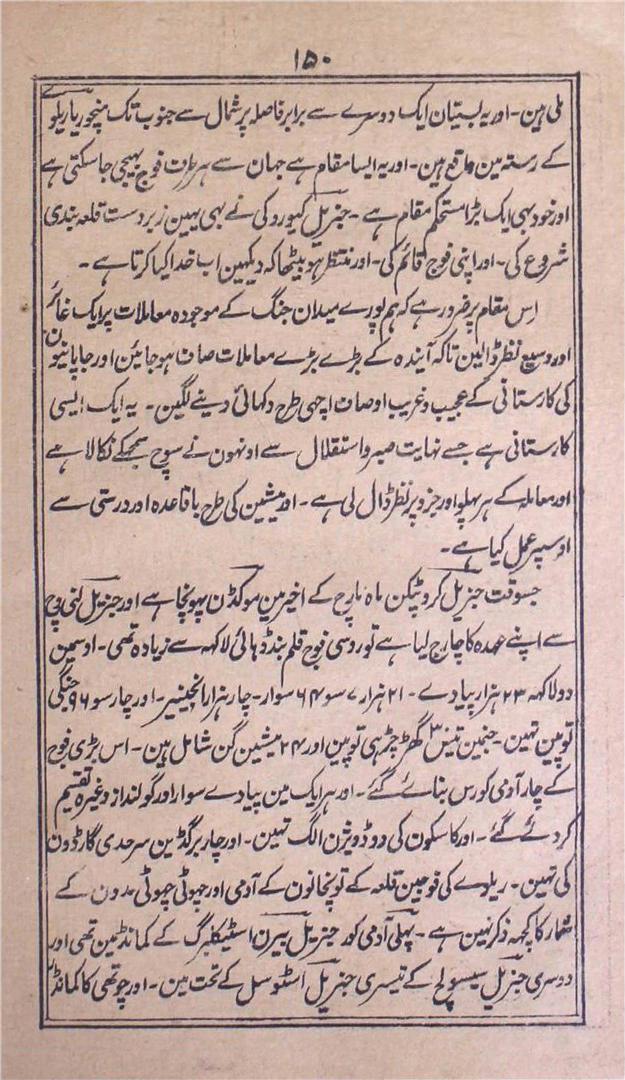 ۱۵۰
ملی ہین۔ اور یہ بستیان ایک دوسرے سے برابر فاصلہ پر شمال سے جنوب تک منچوریا ریلوے
کے رستہ مین واقع ہین۔ اور یہ ایسا مقام ہے جہان سے ہر طرف فوج بہیجی جا سکتی ہے
اور خود بہی ایک بڑا مستحکم مقام ہے۔ جنریل کیوروکی نے بہی یہین زبردست قلعہ بندی
شروع کی۔ اور اپنی فوج قائم کی۔ اور منتظر ہو بیٹھا کہ دیکہین اب خدا کیا کرتا ہے۔
اس مقام پر ضرور ہے کہ ہم پورے میدان جنگ کے موجودہ معاملات پر ایک غائر
اور وسیع نظر ڈالین تاکہ آیندہ کے بڑے بڑے معاملات صاف ہو جائین اور جاپانیون
کی کارستانی کے عجیب و غریب اوصاف اچہی طرح دکہائی دینے لگین۔ یہ ایک ایسی
کارستانی ہے جسے نہایت صبر و استقلال سے اونہون نے سوچ سمجہکے نکالا ہے
اور معاملہ کے ہر پہلو اور جزو پر نظر ڈال لی ہے۔ اور میشین کی طرح باقاعدہ اور درستی سے
اوسپر عمل کیا ہے۔
جسوقت جنریل کروپٹکن ماہ مارچ کے اخیر مین موکڈن پہونچا ہے اور جنریل لنی وچ
سے اپنے عہدہ کا چارج لیا ہے تو روسی فوج قلم بند ڈہائی لاکہہ سے زیادہ تھی۔ اوسمین
دو لاکہہ ۲۳ ہزار پیادے۔ ۲۱ ہزار ۷ سو ۶۴ سوار۔ چار ہزار انجینیر۔ اور چار سو ۹۶ جنگی
توپین تہین۔ جنمین تیس گھڑ چڑہی توپین اور ۲۴ میشین گن شامل ہین۔ اس بڑی فوج
کے چار آرمی کورس بنائے گئے۔ اور ہر ایک مین پیادے سوار اور گولنداز وغیرہ تقسیم
کر دئے گئے۔ اور کاسکون کی دو ڈویژن الگ تہین۔ اور چار برگڈین سرحدی گارڈون
کی تہین۔ ریلوے کی فوجین قلعہ کے توپخانون کے آدمی اور چہوٹی چہوٹی مدون کے
شمار کا کچہہ ذکر نہین ہے۔ پہلی آرمی کور جنریل بیرن اسٹیکلبرگ کے کمانڈ مین تھی اور
دوسری جنریل کے تیسری جنریل اسٹوسل کے تحت مین۔ اور چوتھی کا کمانڈر